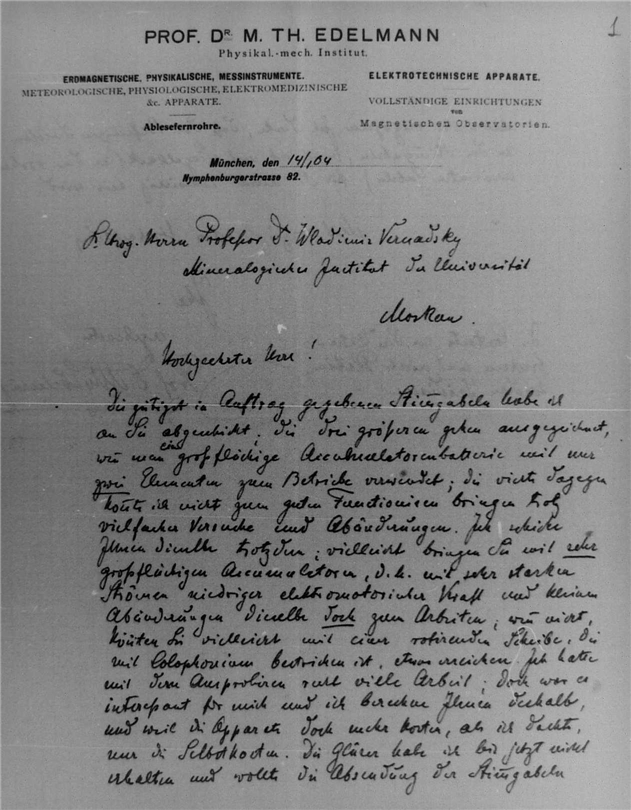 1
PROF. DR. M. TH. EDELMANN
Physikal.-mech. Institut.
ERDMAGNETISCHE, PHYSIKALISCHE, MESSINSTRUMENTE.
METEOROLOGISCHE, PHYSIOLOGISCHE, ELEKTROMEDIZINISCHE
&c. APPARATE.
Ablesefernrohre.
ELEKTROTECHNISCHE APPARATE.
VOLLSTÄNDIGE EINRICHTUNGEN
von
Magnetischen Observatorien.
München, den 14/1 04
Nymphenburgerstrasse 82.
Herrn Professor Dr. Wladimir Vernadsky
Mineralogisches Institut der Universität
Moskau.
Hochgeehrter Herr!
Die gütigst in Auftrag gegebenen Stimgabeln habe ich
an Sie abgeschickt; die drei größeren gehen ausgezeichnet,
wenn man eine großflächige Accumulatorenbatterie mit nur
zwei Elementen zum Betriebe verwendet; die vierte dagegen
konnte ich nicht zum guten Functioniren bringen trotz
vielfacher Versuche und Abänderungen. Ich schicke
Ihnen dieselbe trotzdem; vielleicht bringen Sie mit sehr
großflächigen Accumulatoren, d.h. mit sehr starken
Strömen niedriger elektromotorischer Kraft und kleinen
Abänderungen dieselbe doch zum Arbeiten; wenn nicht,
könnten Sie vielleicht mit einer rotirenden Scheibe, die
mit Colophonium bestrichen ist, etwas erreichen. Ich hatte
mit dem Ausprobiren recht viele Arbeit; doch war es
interessant für mich und ich berechne Ihnen deshalb,
und weil die Apparate doch mehr kosten, als ich dachte,
nur die Selbstkosten. Die Gläser habe ich bis jetzt nicht
erhalten und wollte die Absendung der Stimgabeln